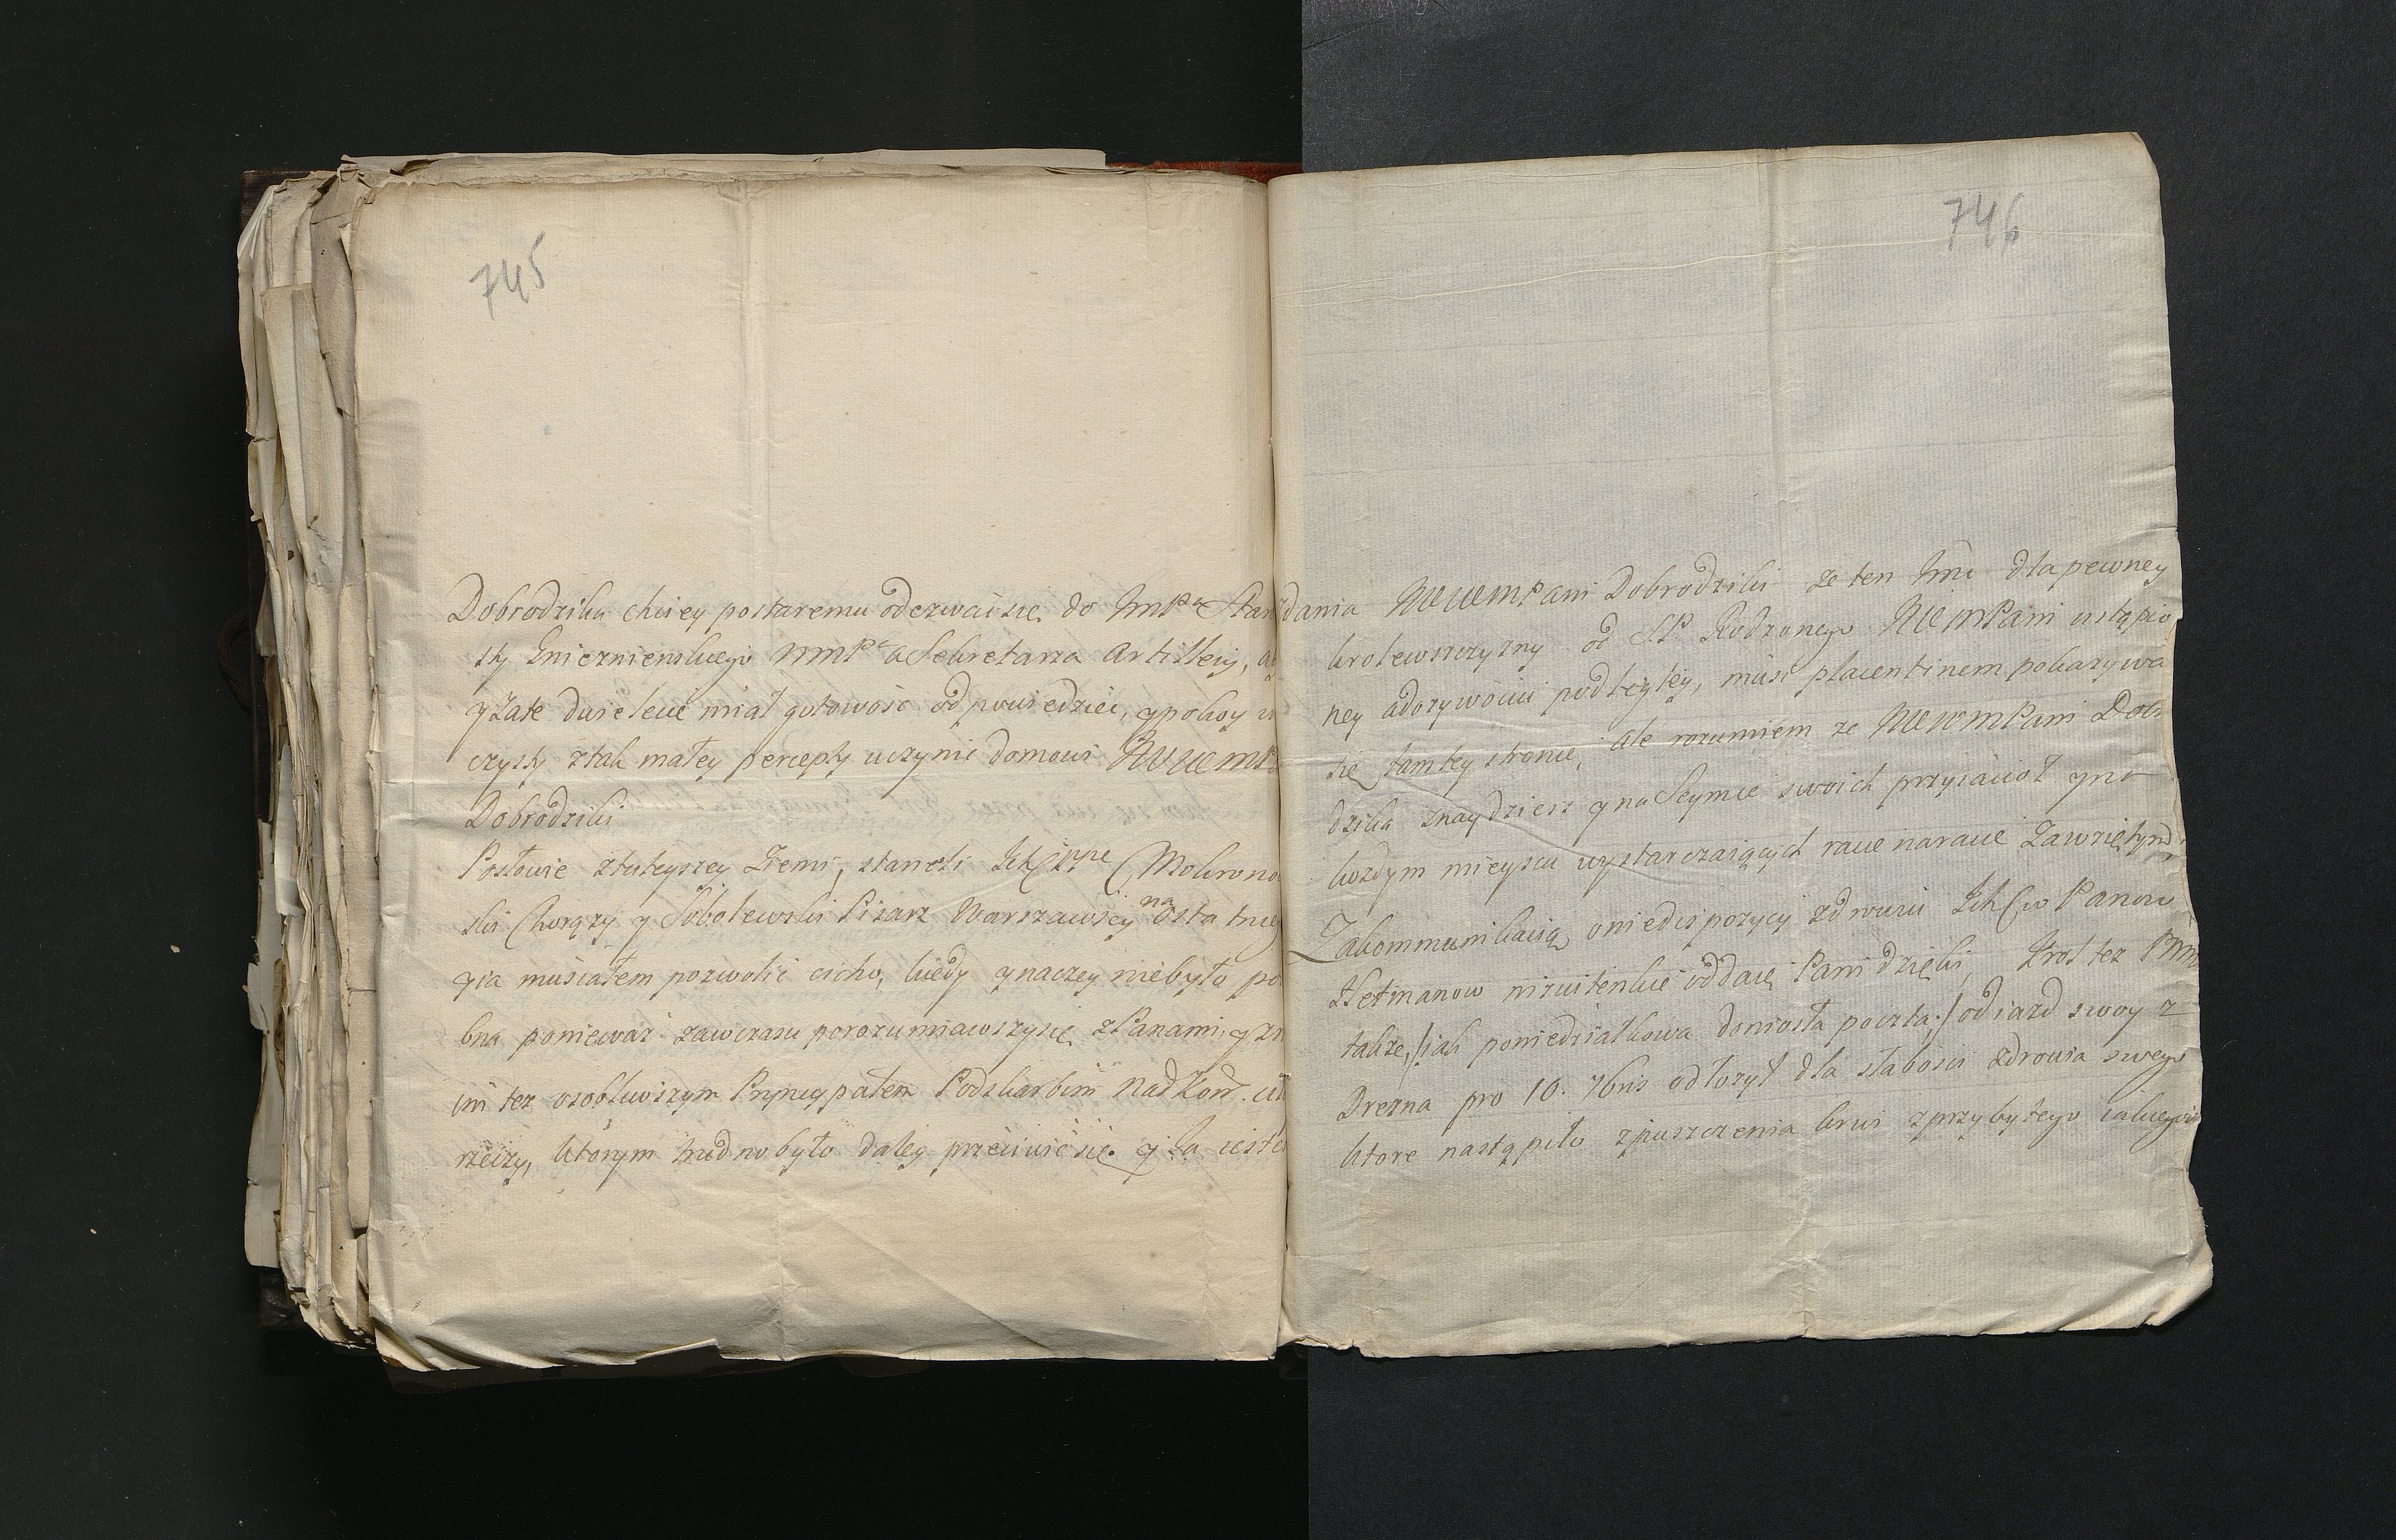 745
Dobrodzika chciey postaremu odezwać się do ImPa Star
sty Gnieznienskiego MMPa a Sekretarza Artillery,
y za te dwie lecie miał gotowość odpowiedzieć, y pokoy
czysty z tak małey percepty uczynić domowi
Dobrodziki
Posłowie z tuteyszey Ziemi, staneli Mokrono
ski Chorązy y Sobolewski Pisarz Warszawscy na osta tniey
y ia musiałem pozwolić cicho, kiedy ynaczey niebyło po
bna poniewaz zawczasu porozumiawszy się z Panami, y
im tez osobliwszym Pryncypałem Podskarbim Nad Kor.
rzeczy, ktorym trudno było daley przeciwić się. y Za
746
dania WWMPani Dobrodziki ze ten Imć dla pewney
krolewszczyzny od S.P. Rodzonego WMPani ustąpio
ney adozywociu podległey, musi placentinem pokazywa
się tamtey stronie, ale rozumiem ze WWMPani Dob
dzika znaydziesz y na Seymie swoich przyiacioł y na
kozdym mieyscu wystarczaiących racie naracie Zawziętym,
Zakommunikacią o niedispozycyi zdrowia Panow
Hetmanow nizuitenkie oddaię Pani dzięki, Krol tez
takze, /:iak poniedziałkowa doniosła poczta:/ odiazd swoy z
Drezna pro 10. 7bris odłozył dla słabosci zdrowia swego
ktore nastąpiło z puszczenia krwi z przybyłego iakiegoś